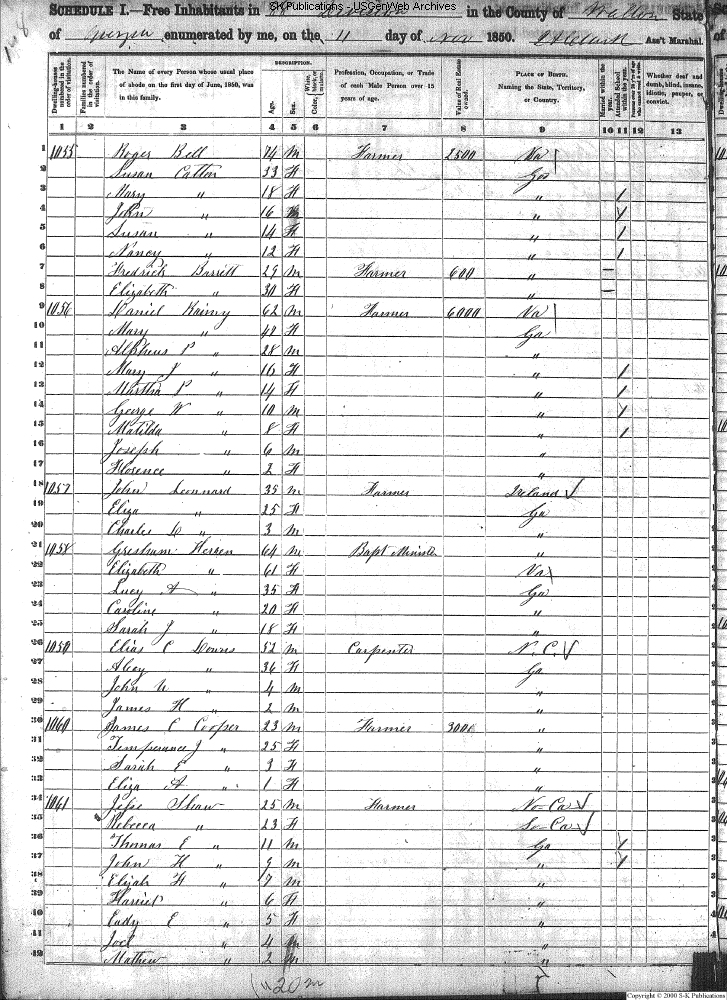 SK Publications - USGenWeb Archives
SCHEDULE I.—Free Inhabitants in Division in the County of Walton State
of Georgia enumerated by me, on the 11 day of Nov 1850. Ass't Marshal.
Dwelling-houses numbered in the order of visitation.
Families numbered in the order of visitation.
The Name of every Person whose usual place of abode on the first day of June, 1850, was in this family.
DESCRIPTION.
Age.
Sex.
Color, White, black, or mulatto.
Profession, Occupation, or Trade of each Male Person over 15 years of age.
Value of Real Estate owned.
PLACE OF BIRTH. Naming the State, Territory, or Country.
Married within the year.
Attended School within the year.
Whether deaf and dumb, blind, insane, idiotic, pauper, or convict.
1 2 3 4 5 6 7 8 9 10 11 12 13
1 1055 Roger Bell 74 M Farmer 2500 Va
2 Susan Catton 33 F Geo
3 Mary " 18 F " /
4 John " 16 M " /
5 Susan " 14 F " /
6 Nancy " 12 F " /
7 Fredrick Barritt 29 M Farmer 600 " –
8 Elizabeth " 30 F " –
9 1056 Daniel 62 M Farmer 6000 Va
10 Mary " 48 F Ga
11 Alpheus P " 28 M "
12 Mary J " 16 F " /
13 Martha P " 14 F " /
14 George W " 10 M " /
15 Matilda " 8 F " /
16 Joseph " 6 M "
17 Florence " 2 F "
18 1057 John Leonnard 35 M Farmer Ireland ✓
19 Eliza " 25 F Ga
20 Charles " 3 M "
21 1058 Gresham Herren 64 M Bapt Minister "
22 Elizabeth " 61 F Va
23 Lucy A " 35 F Ga
24 Caroline " 20 F "
25 Sarah J " 18 F "
26 1059 Elias C Downs 52 M Carpenter N. C. ✓
27 " 36 F Ga
28 John W " 4 M "
29 James H " 2 M "
30 1060 James C Cooper 23 M Farmer 3000 "
31 Temperance J " 25 F "
32 Sarah E " 3 F "
33 Eliza A " 1 F "
34 1061 Jesse Shaw 25 M Farmer No-Ca ✓
35 Rebecca " 23 F So-Ca ✓
36 Thomas E " 11 M Ga /
37 John H " 9 M " /
38 Elijah H " 7 M "
39 Harriet " 6 F "
40 Cady E " 5 F "
41 Joel " 4 M "
42 Mathew " 2 M "
20 m
Copyright © 2000 S-K Publications